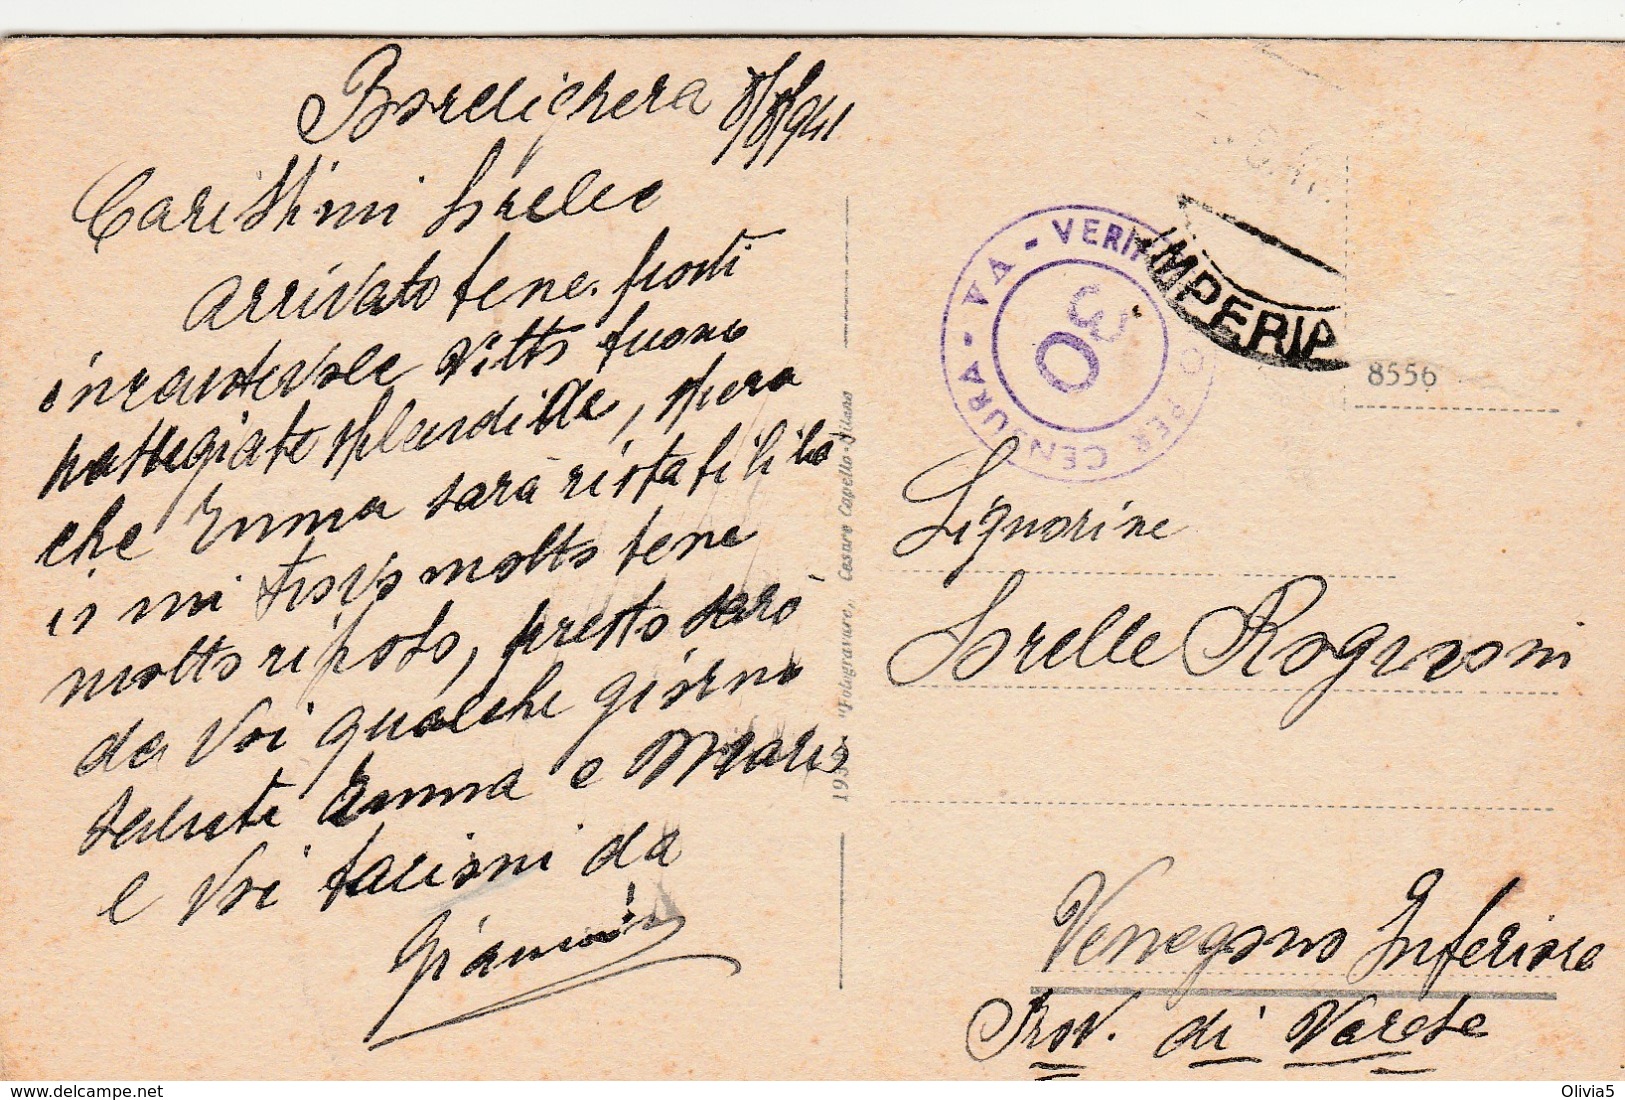 Bordighera 8/8/941
Carissimi Sorelle
arrivato bene. posti
incantevole vitto buono
passegiate splendide, spero
che Emma sarà ristabilita
io mi trovo molto bene
molto riposo, presto sarò
da Voi qualche giorno
saluti Emma e Mario
e Voi bacioni da
Gianni
"Fotogravure, Cesare Capello-Milano
VERIFICATO PER CENSURA - VA -
30
IMPERIA
8556
Signorine
Sorelle Rognoni
Venegono Inferiore
Prov. di Varese
delcampe.net
Olivia5